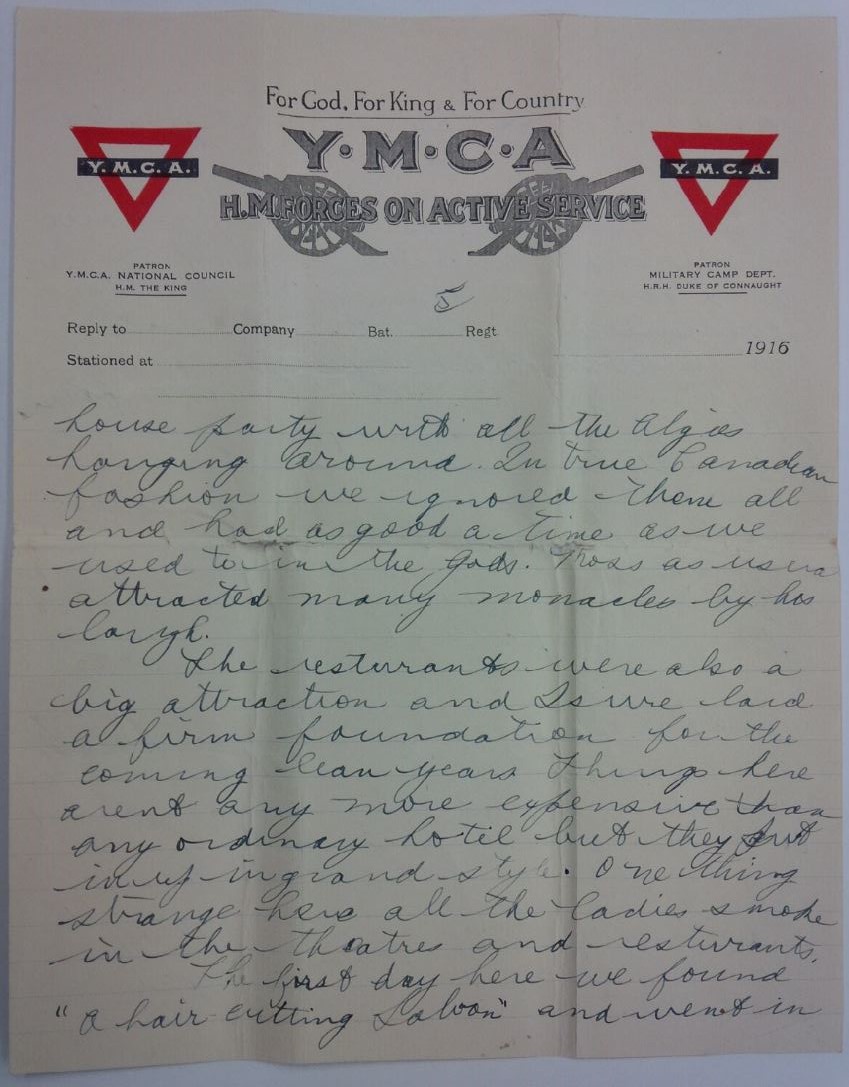 For God, For King & For Country
Y·M·C·A
H.M. FORCES ON ACTIVE SERVICE
Y. M. C. A.
Y. M. C. A.
PATRON
Y.M.C.A. NATIONAL COUNCIL
H.M. THE KING
PATRON
MILITARY CAMP DEPT.
H.R.H. DUKE OF CONNAUGHT
5
Reply to Company Bat. Regt
Stationed at
1916
house party with all the Algies
hanging around. In true Canadian
fashion we ignored them all
and had as good a time as we
used to in the gods. Ross as usua
attracted many monacles by his
laugh.
The resturants were also a
big attraction and I sure laid
a firm foundation for the
coming lean years Things here
arent any more expensive than
any ordinary hotel but they put
it up in grand style. One thing
strange here all the ladies smoke
in the theatres and resturants.
The first day here we found
"a hair cutting Saloon" and went in